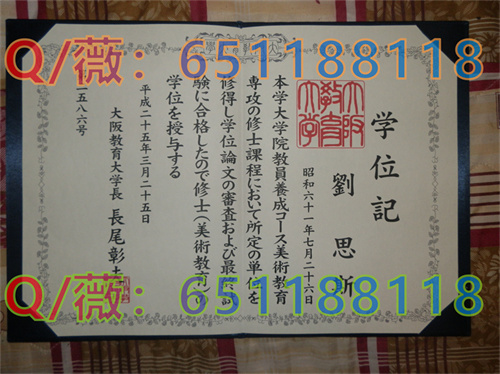 Q/薇：651188118
学位記
劉思
昭和六十一年七月二十六日
本学大学院教員養成コース美術教育
専攻の修士課程において所定の単位を
修得し学位論文の審査および最終試
験に合格したので修士（美術教育）の
学位を授与する
平成二十五年三月二十五日
大阪教育大学長 長尾彰士
一五八六号
大阪教育大学
Q/薇：651188118